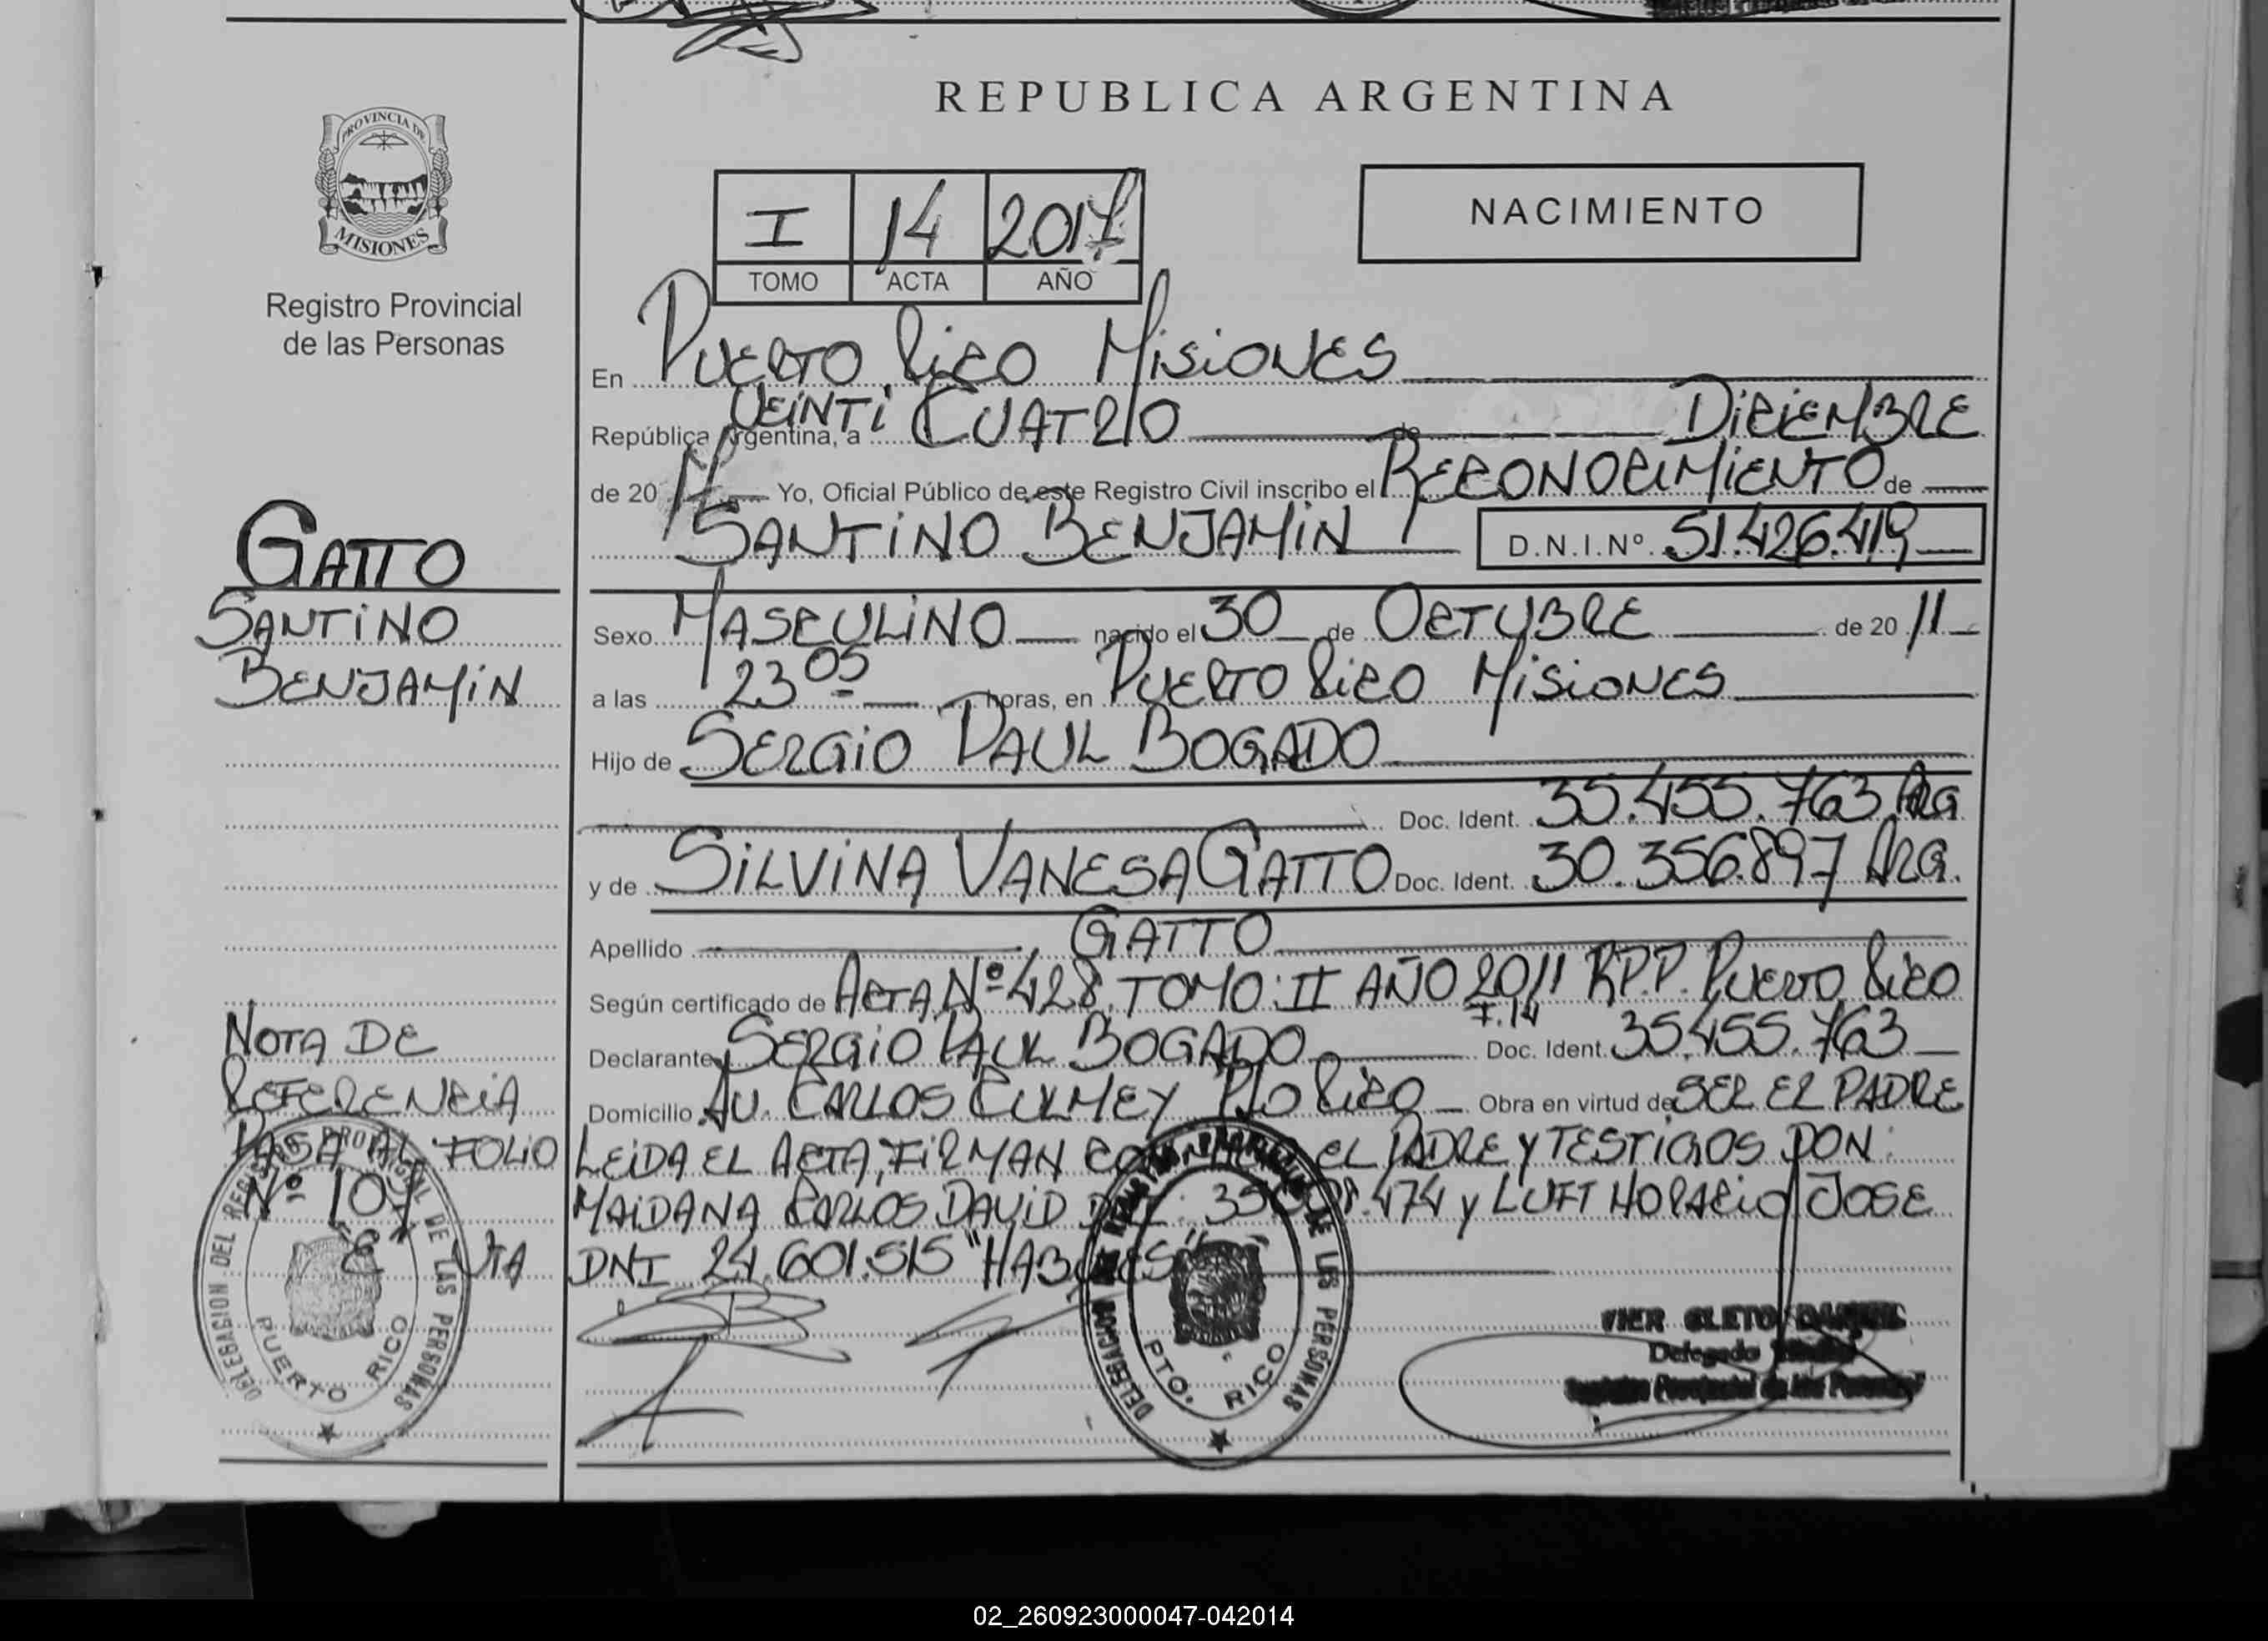 REPUBLICA ARGENTINA
PROVINCIA DE
MISIONES
Registro Provincial
de las Personas
I 14 2017
TOMO ACTA AÑO
NACIMIENTO
En PUERTO RICO MISIONES
República Argentina, a VEINTI CUATRO de DICIEMBRE
de 20 Yo, Oficial Público de este Registro Civil inscribo el RECONOCIMIENTO de
SANTINO BENJAMIN D.N.I.Nº 51.426.419
GATTO
SANTINO
BENJAMIN
Sexo MASCULINO nacido el 30 de OCTUBRE de 20 11
a las 23 05 horas, en PUERTO RICO MISIONES
Hijo de SERGIO PAUL BOGADO
Doc. Ident. 35.455.763 ARG
y de SILVINA VANESA GATTO Doc. Ident. 30.356.897 ARG.
Apellido GATTO
Según certificado de ACTA Nº 428, TOMO: II AÑO 2011 R.P.P. PUERTO RICO
F.14
Declarante SERGIO PAUL BOGADO Doc. Ident. 35.455.763
Domicilio AV. CARLOS CULMEY PTO RICO Obra en virtud de SER EL PADRE
LEIDA EL ACTA, FIRMAN EL PADRE Y TESTIGOS DON:
MAIDANA CARLOS DAVID .474 y LUFT HORACIO JOSE
DNI 24.601.515 "HABILES"
NOTA DE
REFERENCIA
PASA AL FOLIO
Nº 107
DELEGACION DEL REGISTRO PROVINCIAL DE LAS PERSONAS
PUERTO RICO
DELEGACION DE LAS PERSONAS
PTO. RICO
VIER CLETO DANIEL
Delegado Titular
Registro Provincial de las Personas
02_260923000047-042014